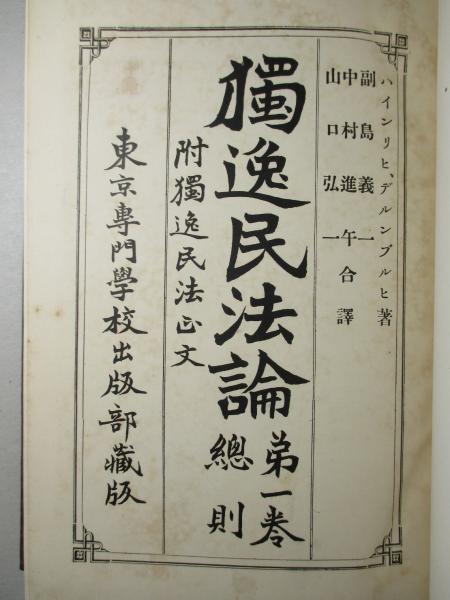 ハインリヒ、デルンブルヒ著
副島義一
中村進午合譯
山口弘一
獨逸民法論
第一卷
總則
附獨逸民法正文
東京專門學校出版部藏版